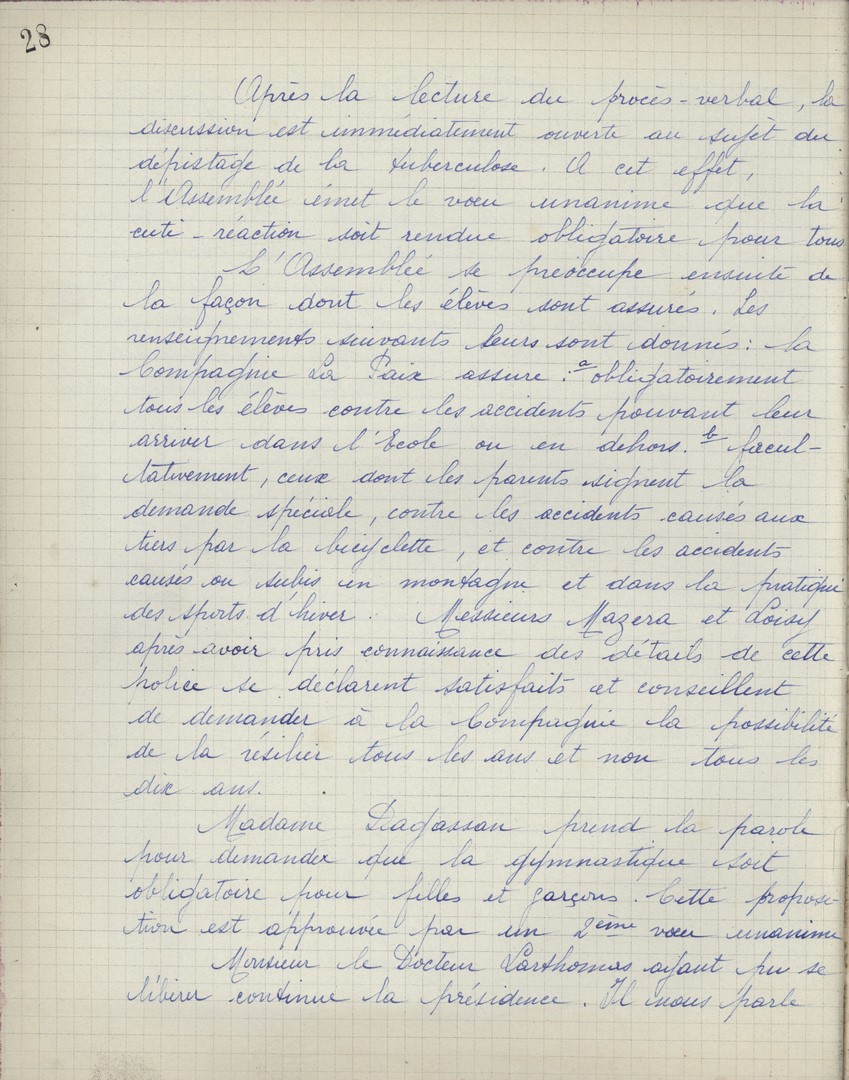 28
Après la lecture du procès-verbal, la
discussion est immédiatement ouverte au sujet du
dépistage de la tuberculose. A cet effet,
l'Assemblée émet le vœu unanime que la
cuti-réaction soit rendue obligatoire pour tous
L'Assemblée se préoccupe ensuite de
la façon dont les élèves sont assurés. Les
renseignements suivants leurs sont donnés: la
Compagnie La Paix assure : a obligatoirement
tous les élèves contre les accidents pouvant leur
arriver dans l'Ecole ou en dehors. b facul-
tativement, ceux dont les parents signent la
demande spéciale, contre les accidents causés aux
tiers par la bicyclette, et contre les accidents
causés ou subis en montagne et dans la pratique
des sports d'hiver. Messieurs Mazera et Loisy
après avoir pris connaissance des détails de cette
police se déclarent satisfaits et conseillent
de demander à la Compagnie la possibilité
de la résilier tous les ans et non tous les
dix ans.
Madame Dagassan prend la parole
pour demander que la gymnastique soit
obligatoire pour filles et garçons. Cette proposi-
tion est approuvée par un 2ème vœu unanime
Monsieur le Docteur Larthomas ayant pu se
libérer continue la présidence. Il nous parle